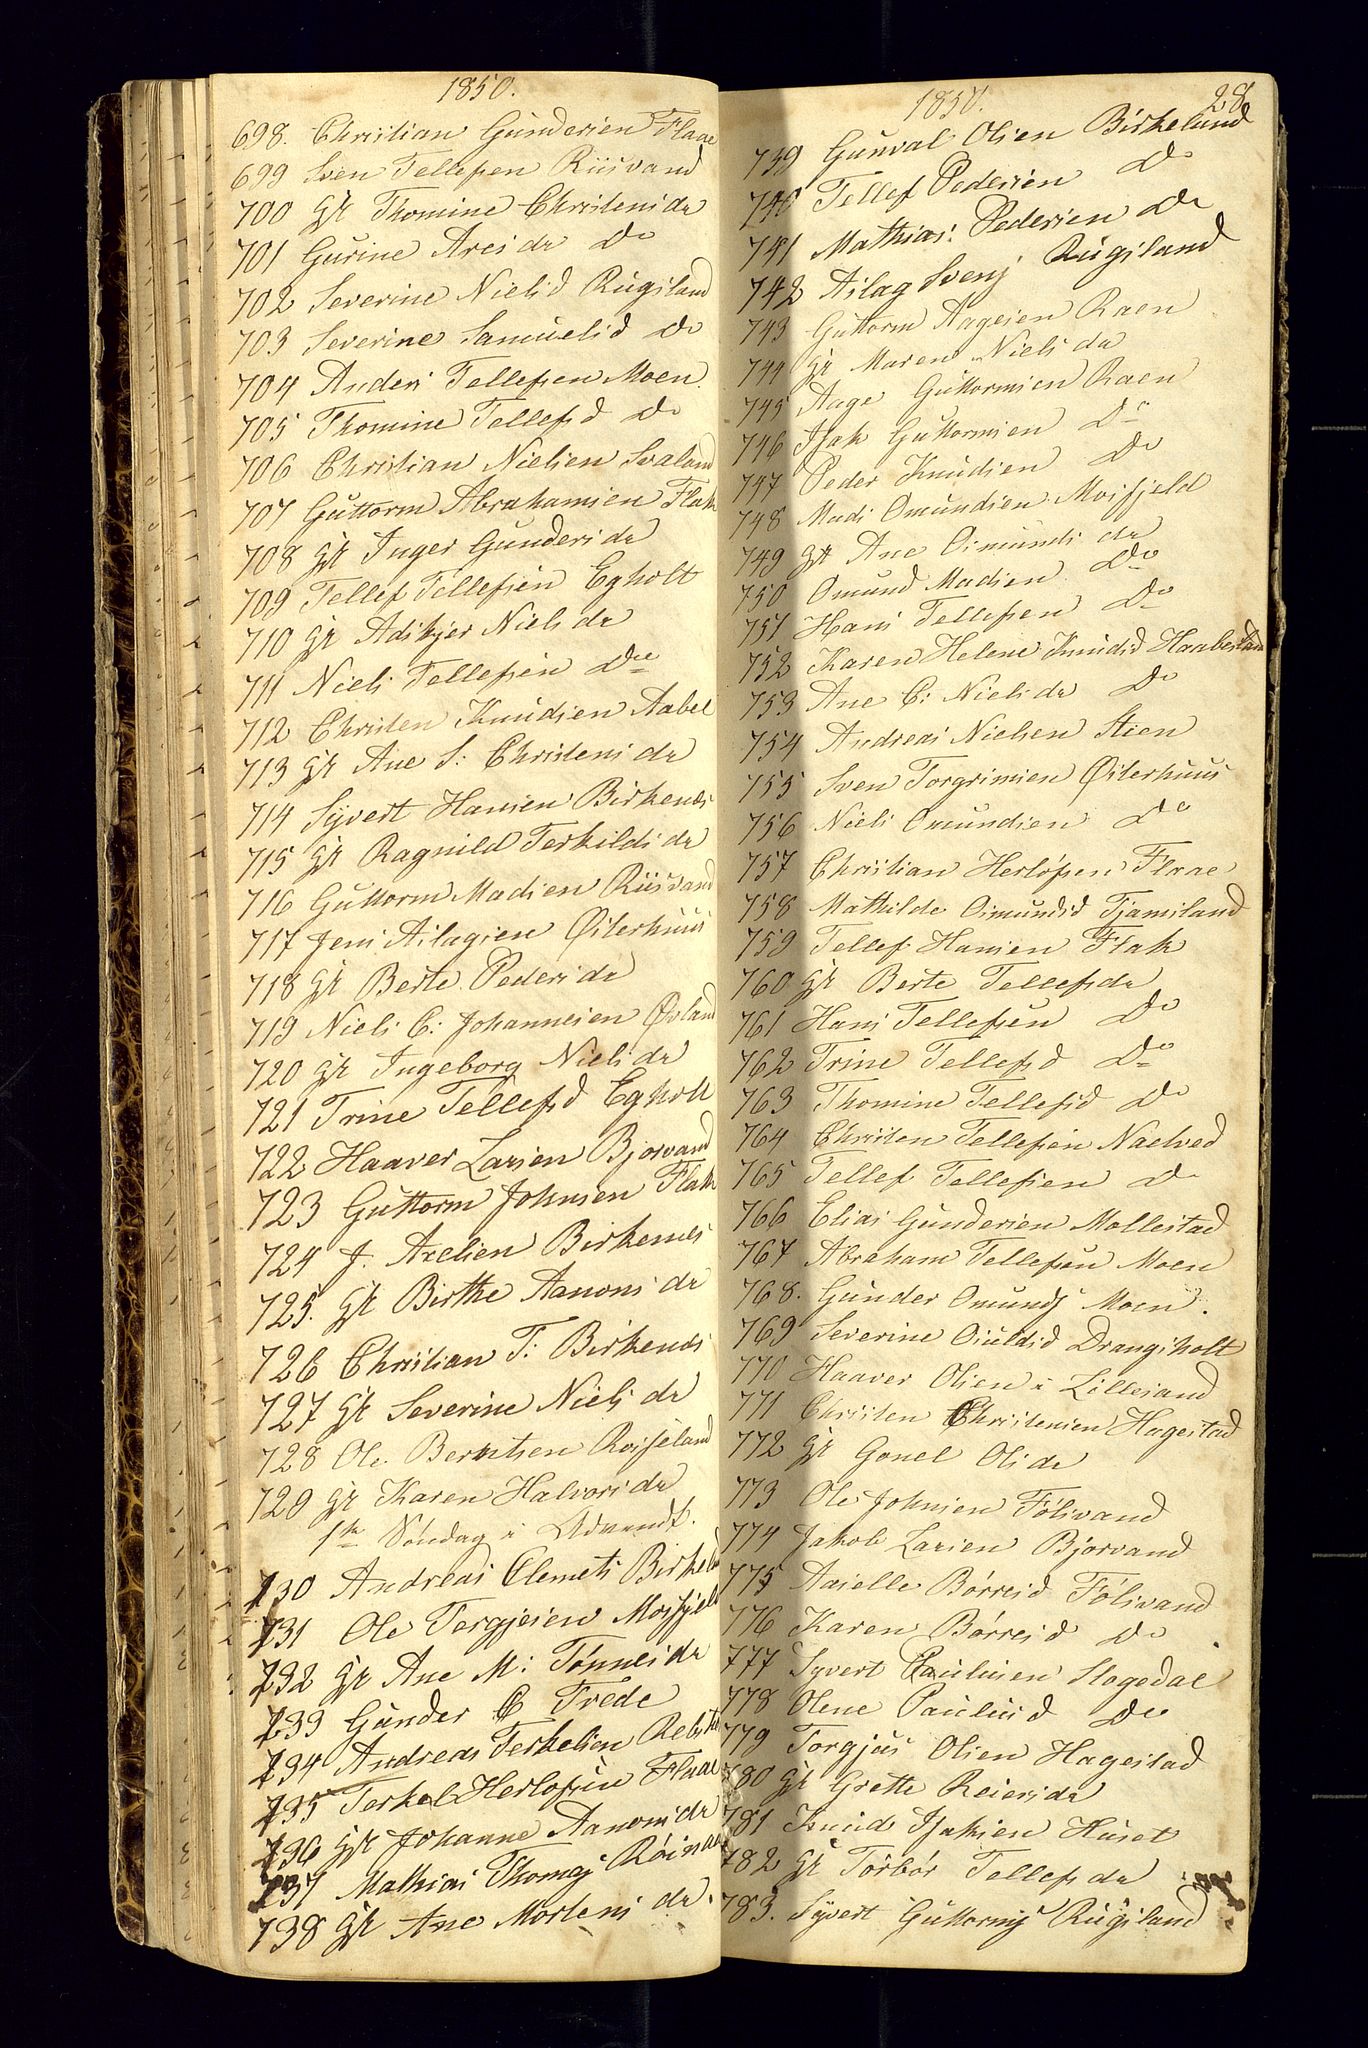 1850.
698. Christian Gundersen Flaae
699 Sven Tellefsen Riisvand
700 Gr Thomine Christensda
701 Gurine Aresda Do
702 Severine Nielsd Rugsland
703 Severine Samuelsd Do
704 Anders Tellefsen Moen
705 Thomine Tellefsd Do
706 Christian Nielsen Svaland
707 Guttorm Abrahamsen Flak
708 Gr Inger Gundersda
709 Tellef Tellefsen Egholt
710 Gr Adskjer Nielsda
711 Niels Tellefsen Do
712 Christen Knudsen Aabel
713 Gr Ane S: Christensda
714 Syvert Hansen Birkenes
715 Gr Ragnild Terkildsda
716 Guttorm Madsen Riisvand
717 Jens Aslagsen Østerhuus
718 Gr Berte Pedersda
719 Niels C: Johannesen Øvland
720 Gr Ingeborg Nielsda
721 Trine Tellefsd Egholt
722 Haaver Larsen Bjorvand
723 Guttorm Johnsen Flak
724 J. Axelsen Birkenes
725. Gr Birthe Aanonsda
726 Christian T: Birkenes
727 Gr Severine Nielsda
728 Ole Berntsen Roiseland
729 Gr Karen Halvorsda
1ste Søndag i Advendt.
730 Andreas Clemets Birkel
731 Ole Tergjesen Mosfjeld
732 Gr Ane M: Tønnesda
733 Gunder C Trede
734 Andreas Terkelsen Rebst
735 Terkel Herlofsen Flaae
736 Gr Johanne Aanonsda
737 Mathias Thomas Røinaa
738 Gr Ane Mortensda.
1850.
28
739 Gunval Olsen Birkelund
740 Tellef Pedersen Do
741 Mathias: Pedersen Do
742 Aslag Svens Rugsland
743 Guttorm Aagesen Raen
744 Gr Maren Nielsda
745 Aage Guttormsen Raen
746 Isak Guttormsen Do
747 Peder Knudsen Do
748 Mads Omundsen Mosfjeld
749 Gr Ane Osmundsda
750 Omund Madsen Do
751 Hans Tellefsen Do
752 Karen Helene Knudsd Haabestad
753 Ane C: Nielsda Do
754 Andreas Nielsen Stien
755 Sven Torgrimsen Østerhuus
756 Niels Omundsen Do
757 Christian Herlofsen Flaae
758 Mathilde Osmundsd Tjamsland
759 Tellef Hansen Flak
760 Gr Berte Tellefsda
761 Hans Tellefsen Do
762 Trine Tellefsd Do
763 Thomine Tellefsd Do
764 Christen Tellefsen Naelved
765 Tellef Tellefsen Do
766 Elias Gundersen Mollestad
767 Abraham Tellefsen Moen
768. Gunder Omunds Moen.
769 Severine Osuldsd Drangsholt
770 Haaver Olsen i Lillesand
771 Christen Christensen Hagestad
772 Gr Gonel Olsda
773 Ole Johnsen Følsvand
774 Jakob Larsen Bjorvand
775 Asielle Børresd Følsvand
776 Karen Børresd Do
777 Syvert Paulusen Slogedal
778 Olene Paulusd Do
779 Torgjus Olsen Hagestad
780 Gr Grethe Reiersda
781 Knud Isaksen Huset
782 Gr Torbor Tellefsda
783. Syvert Guttorms Rugsland